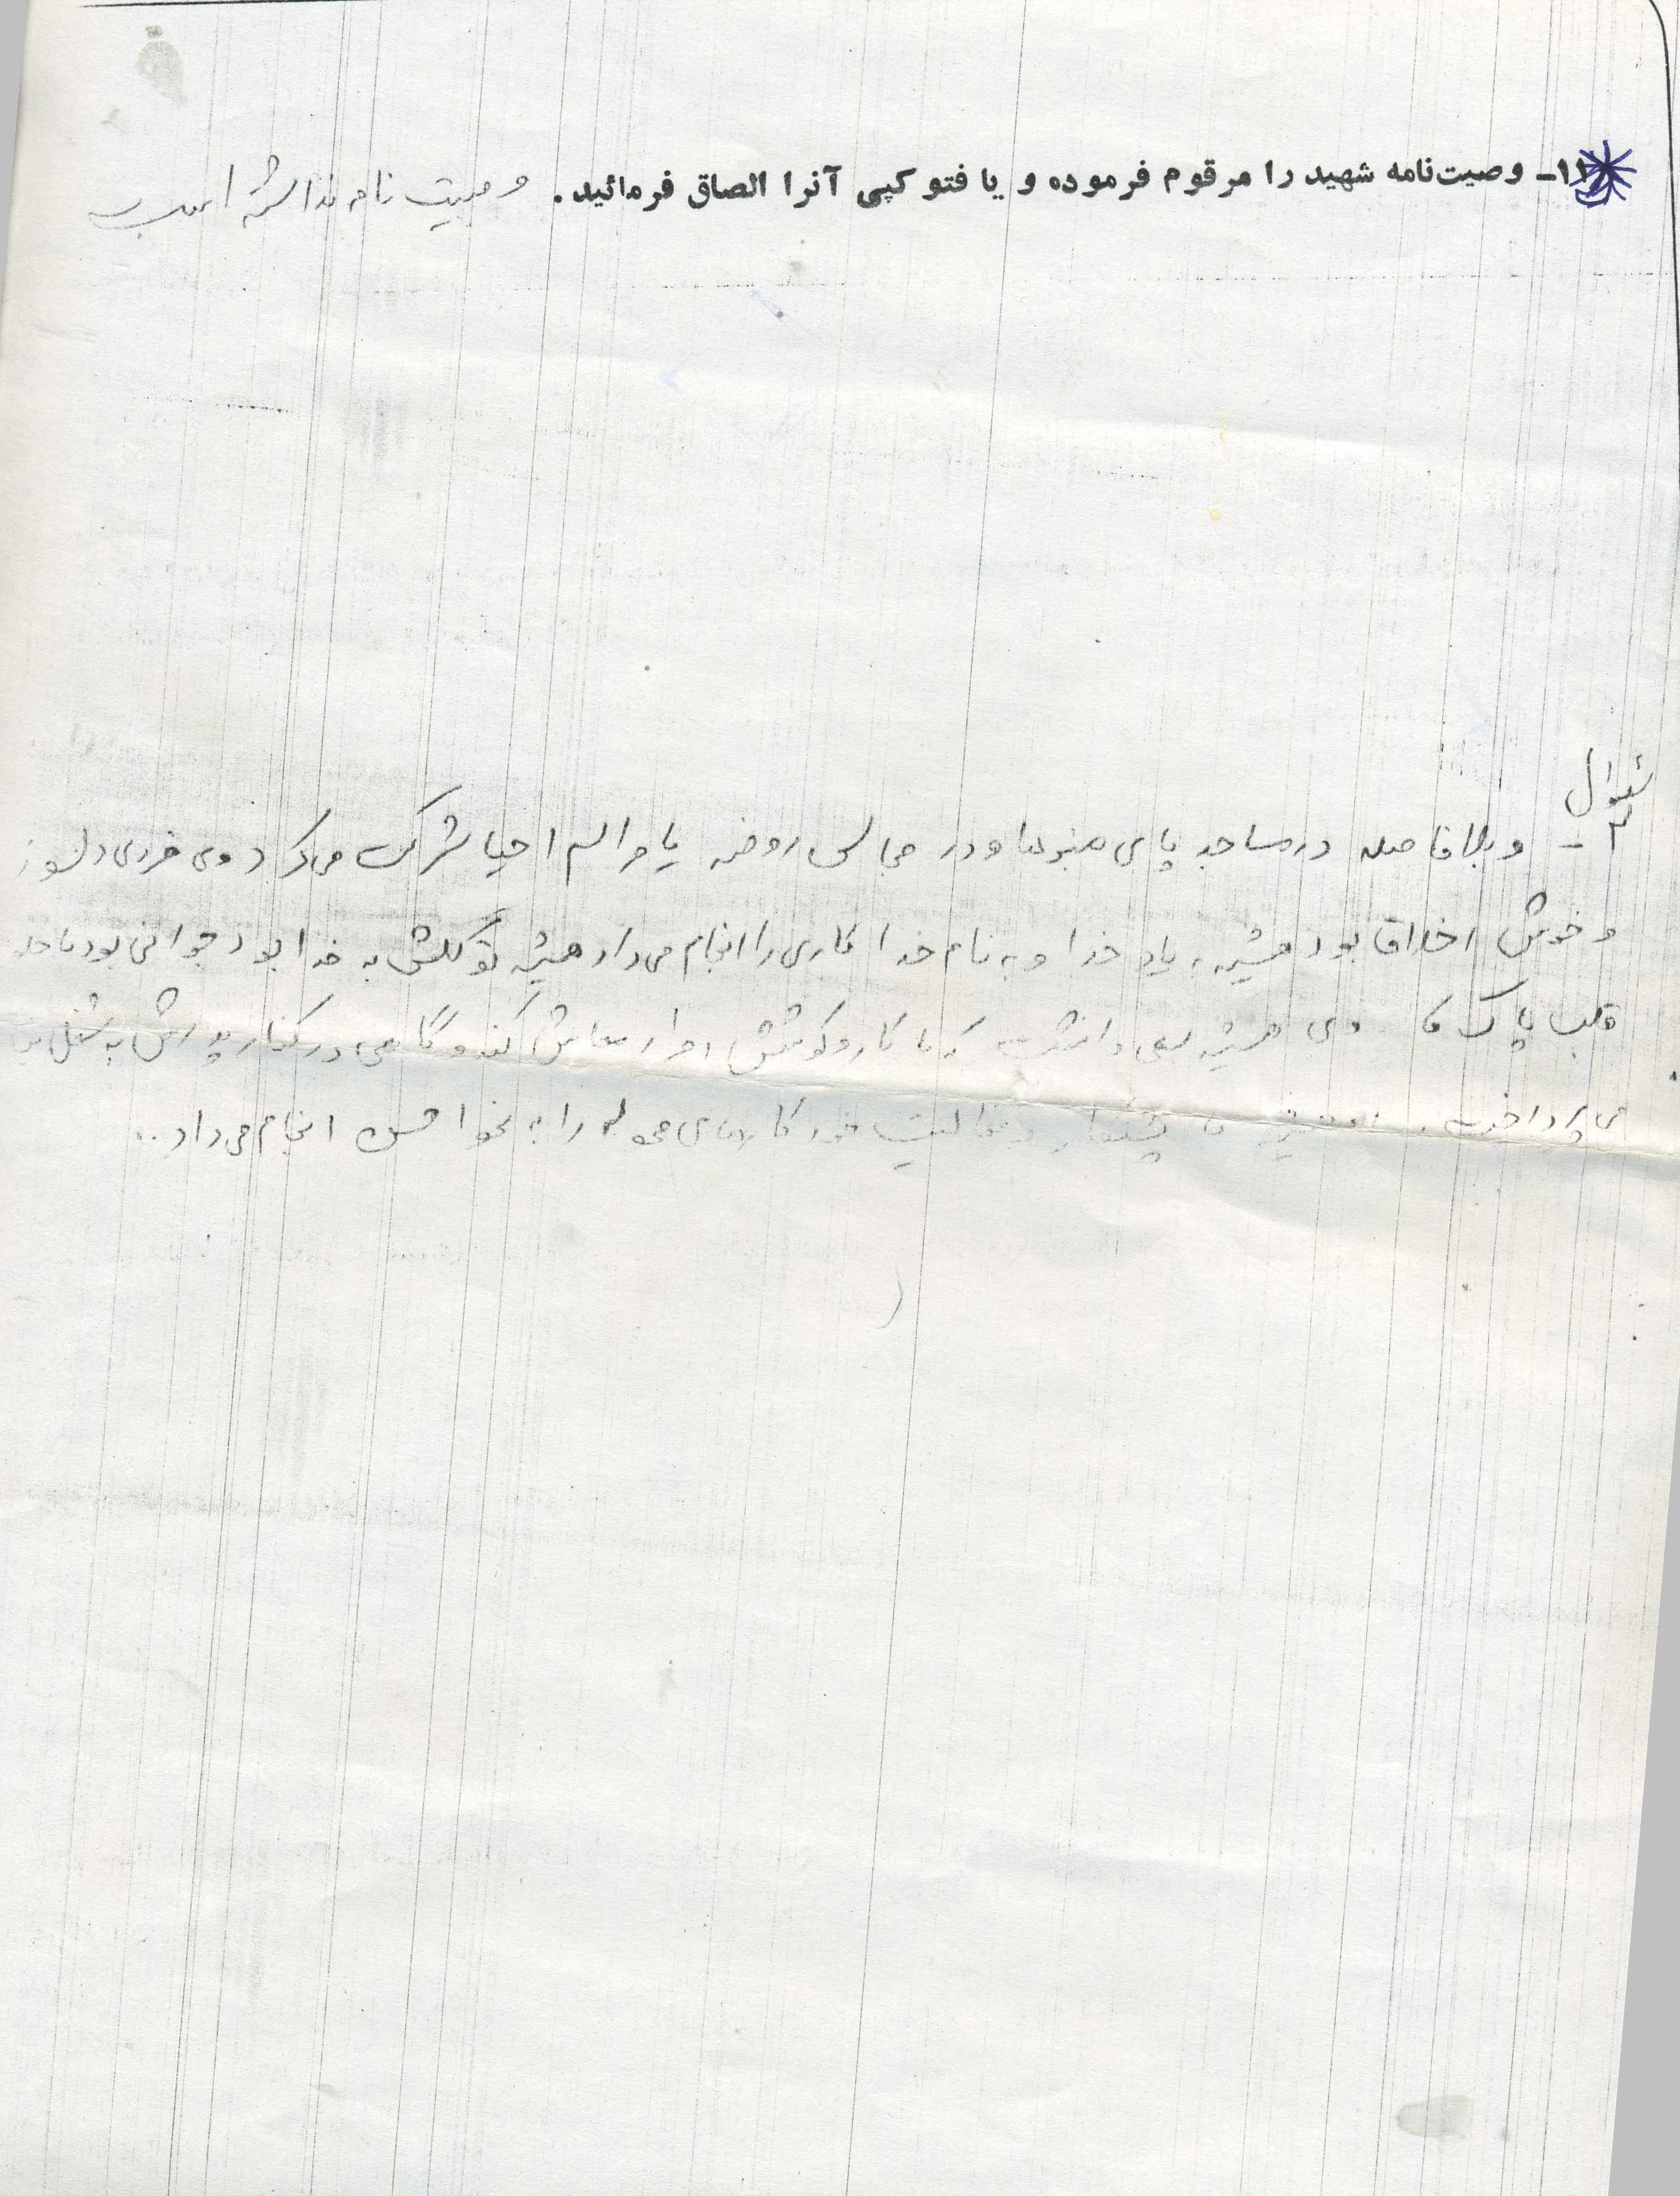 ۱۱- وصیت‌نامه شهید را مرقوم فرموده و یا فتو کپی آنرا الصاق فرمائید. وصیت نامه نداشته است
سئوال
۳- و بلافاصله در مساجد پای منبرها و در مجالس روضه یا مراسم احیا شرکت می‌کرد وی فردی دلسوز
و خوش اخلاق بود همیشه به یاد خدا و به نام خدا کاری را انجام می‌داد همیشه توکلش به خدا بود جوانی بود با
قلب پاک وی همیشه سعی داشت که با کار و کوشش امرار معاش کند و گاهی در کنار پدرش به شغل
می پرداخت. با پشتکار و فعالیت خود کارهای محوله را به نحو احسن انجام می داد..